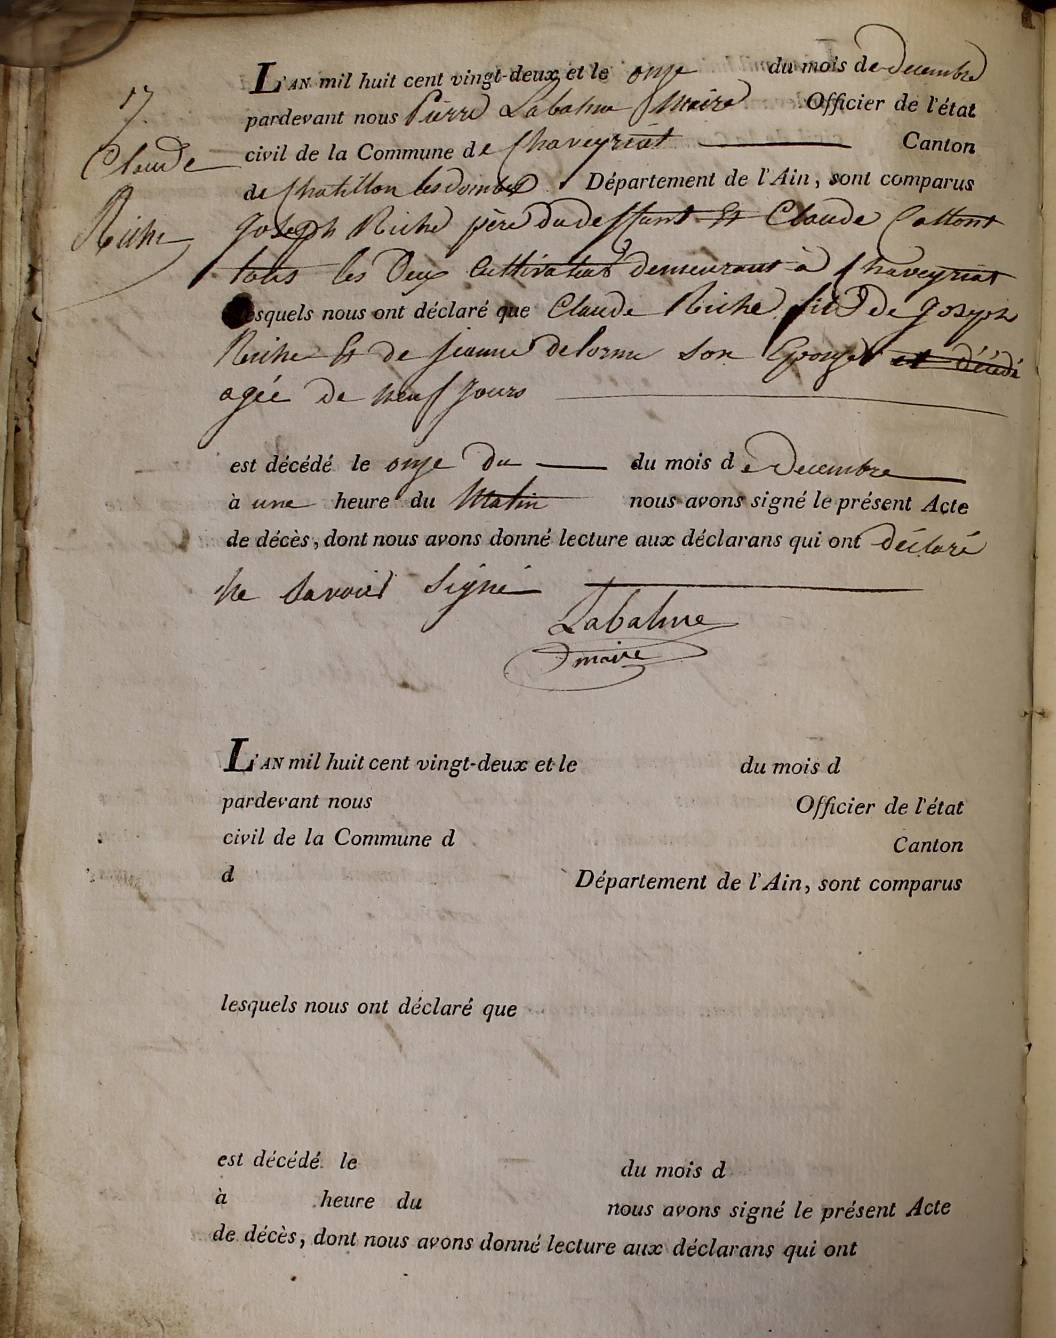 17.
Claude
Riche
L'AN mil huit cent vingt-deux et le onze du mois de decembre
pardevant nous Pierre Labalme Maire Officier de l'état
civil de la Commune de Chaveyriat Canton
de Chatillon les dombes Département de l'Ain, sont comparus
joseph Riche père du deffunt Et Claude Cottont
tous les Deux Cultivateurs demeurant à Chaveyriat
lesquels nous ont déclaré que Claude Riche fils De joseph
Riche Et de jeanne delorme son Epouse est décédé
agée De neuf jours
est décédé le onze du du mois de Decembre
à une heure du Matin nous avons signé le présent Acte
de décès, dont nous avons donné lecture aux déclarans qui ont déclaré
ne savoir signé
Labalme
maire
L'AN mil huit cent vingt-deux et le du mois d
pardevant nous Officier de l'état
civil de la Commune d Canton
d Département de l'Ain, sont comparus
lesquels nous ont déclaré que
est décédé le du mois d
à heure du nous avons signé le présent Acte
de décès, dont nous avons donné lecture aux déclarans qui ont